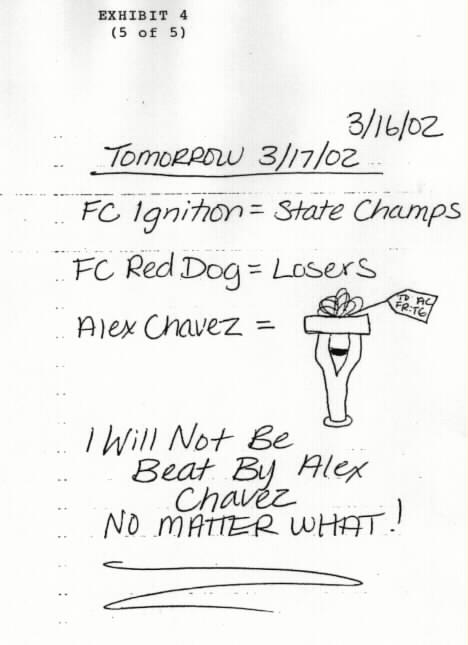 EXHIBIT 4
(5 of 5)
3/16/02
TOMORROW 3/17/02
FC Ignition = State Champs
FC Red Dog = Losers
TO AC
FR:TG
Alex Chavez =
I Will Not Be
Beat By Alex
Chavez
NO MATTER WHAT!